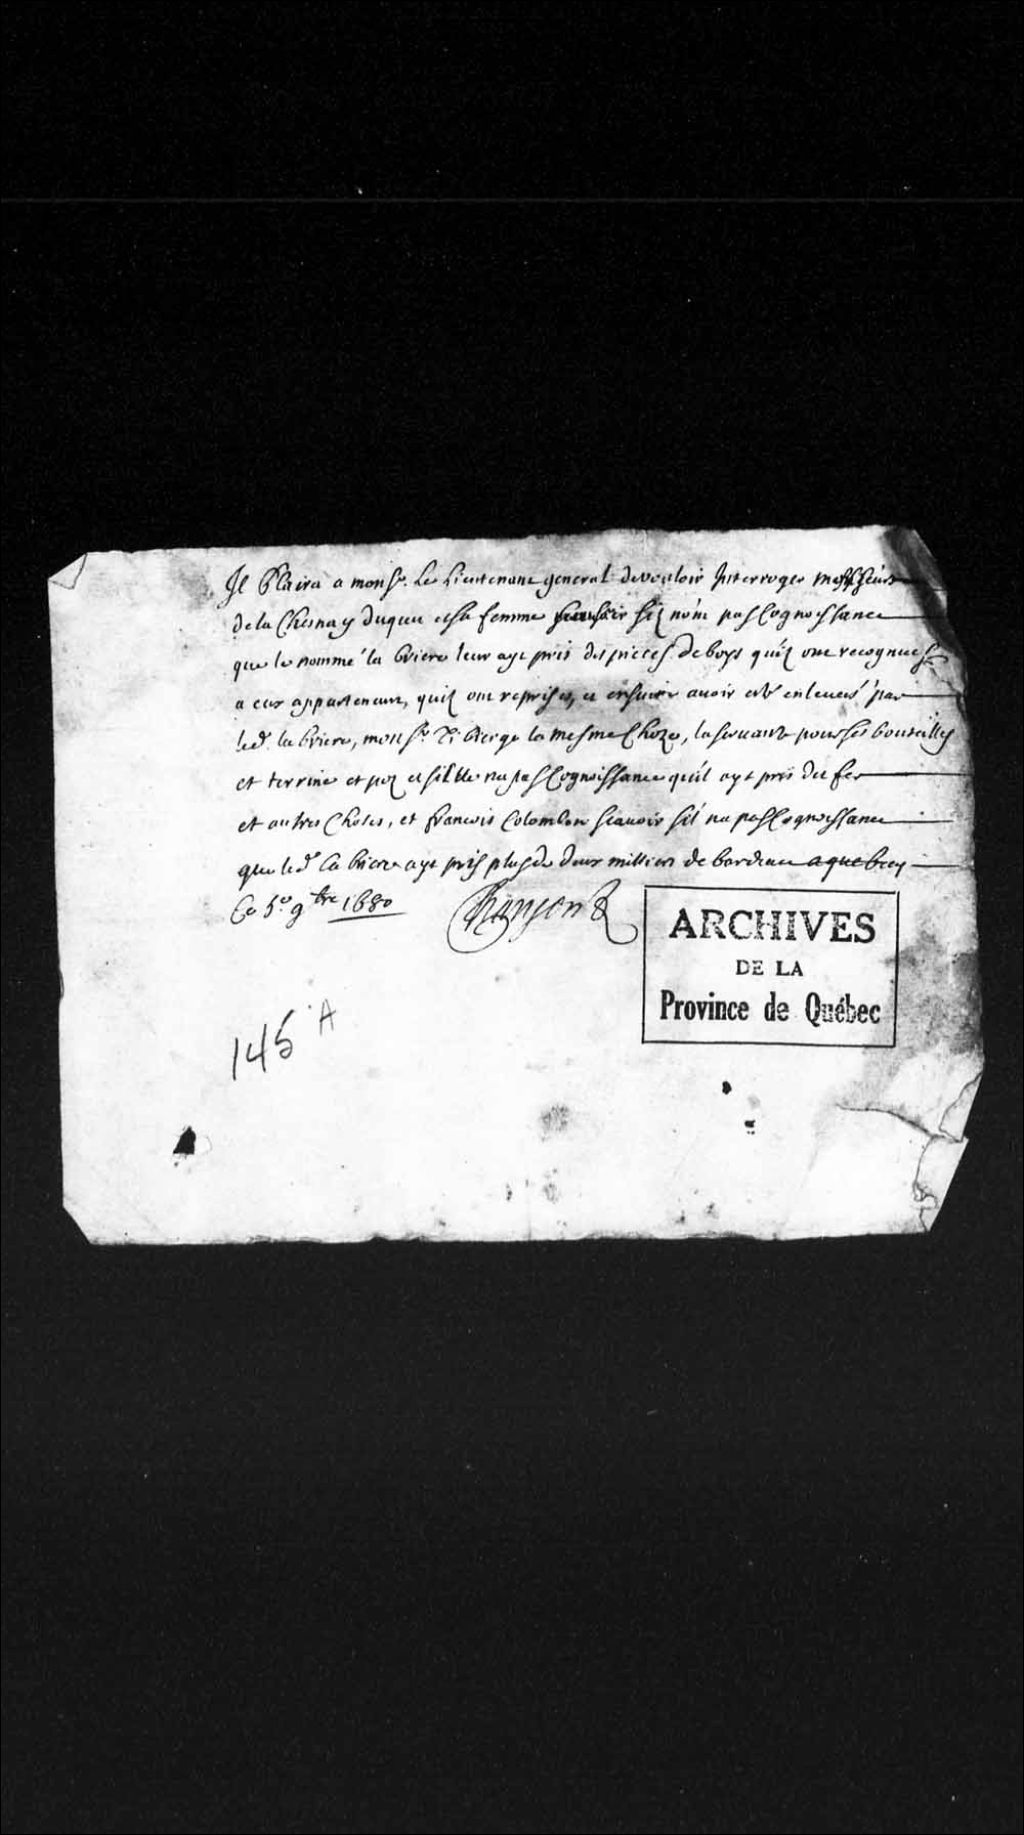 Il Plaira a monsr. Le Lieutenant general de vouloir Interroger messieurs
de la Chesnay duquet et sa femme scauoir silz nont pas Cognoissance
que le nommé la briere leur aye pris des pieces de boys quilz ont recognues
a eux appartenant, quilz ont reprises, et ensuitte auoir esté enleueés par
led. la briere, monsr. Tibierge la mesme Choze, la seruante pour ses bouteilles
et terrine et poz et sil elle na pas Cognoissance quil aye pris du fer
et autres Choses, et francois Colombon scauoir sil na pas Cognoissance
que led. la briere aye pris plus de deux milliers de bardeau a quebecq
Ce 5e. 9bre 1680
ARCHIVES
DE LA
Province de Québec
145 A